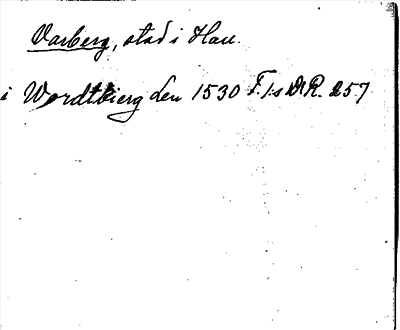 Varberg, stad i Hall.
i Wordtbierg den 1530 F. 1:s DR. 257